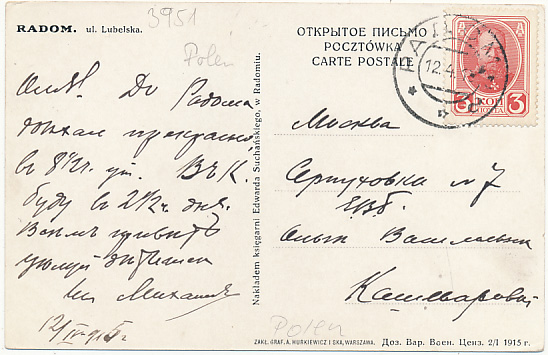 3951
RADOM. ul. Lubelska.
Polen
ОТКРЫТОЕ ПИСЬМО
POCZTÓWKA
CARTE POSTALE
12.4.
3 КОП 3
Оля! До Радома
доѣхал прекрасно
в 8½ г. ут. В К.
буду в 2½ ч. дня.
Всѣмъ привѣтъ
цѣлуй
Михаил
12/IV 915 г.
Nakładem księgarni Edwarda Suchańskiego, w Radomiu.
Москва
Серпуховка № 7
кв.
Ольгѣ Васильевнѣ
Кашкаровой
Polen
ZAKŁ. GRAF. A. HURKIEWICZ I SKA, WARSZAWA. Доз. Вар. Воен. Ценз. 2/I 1915 г.